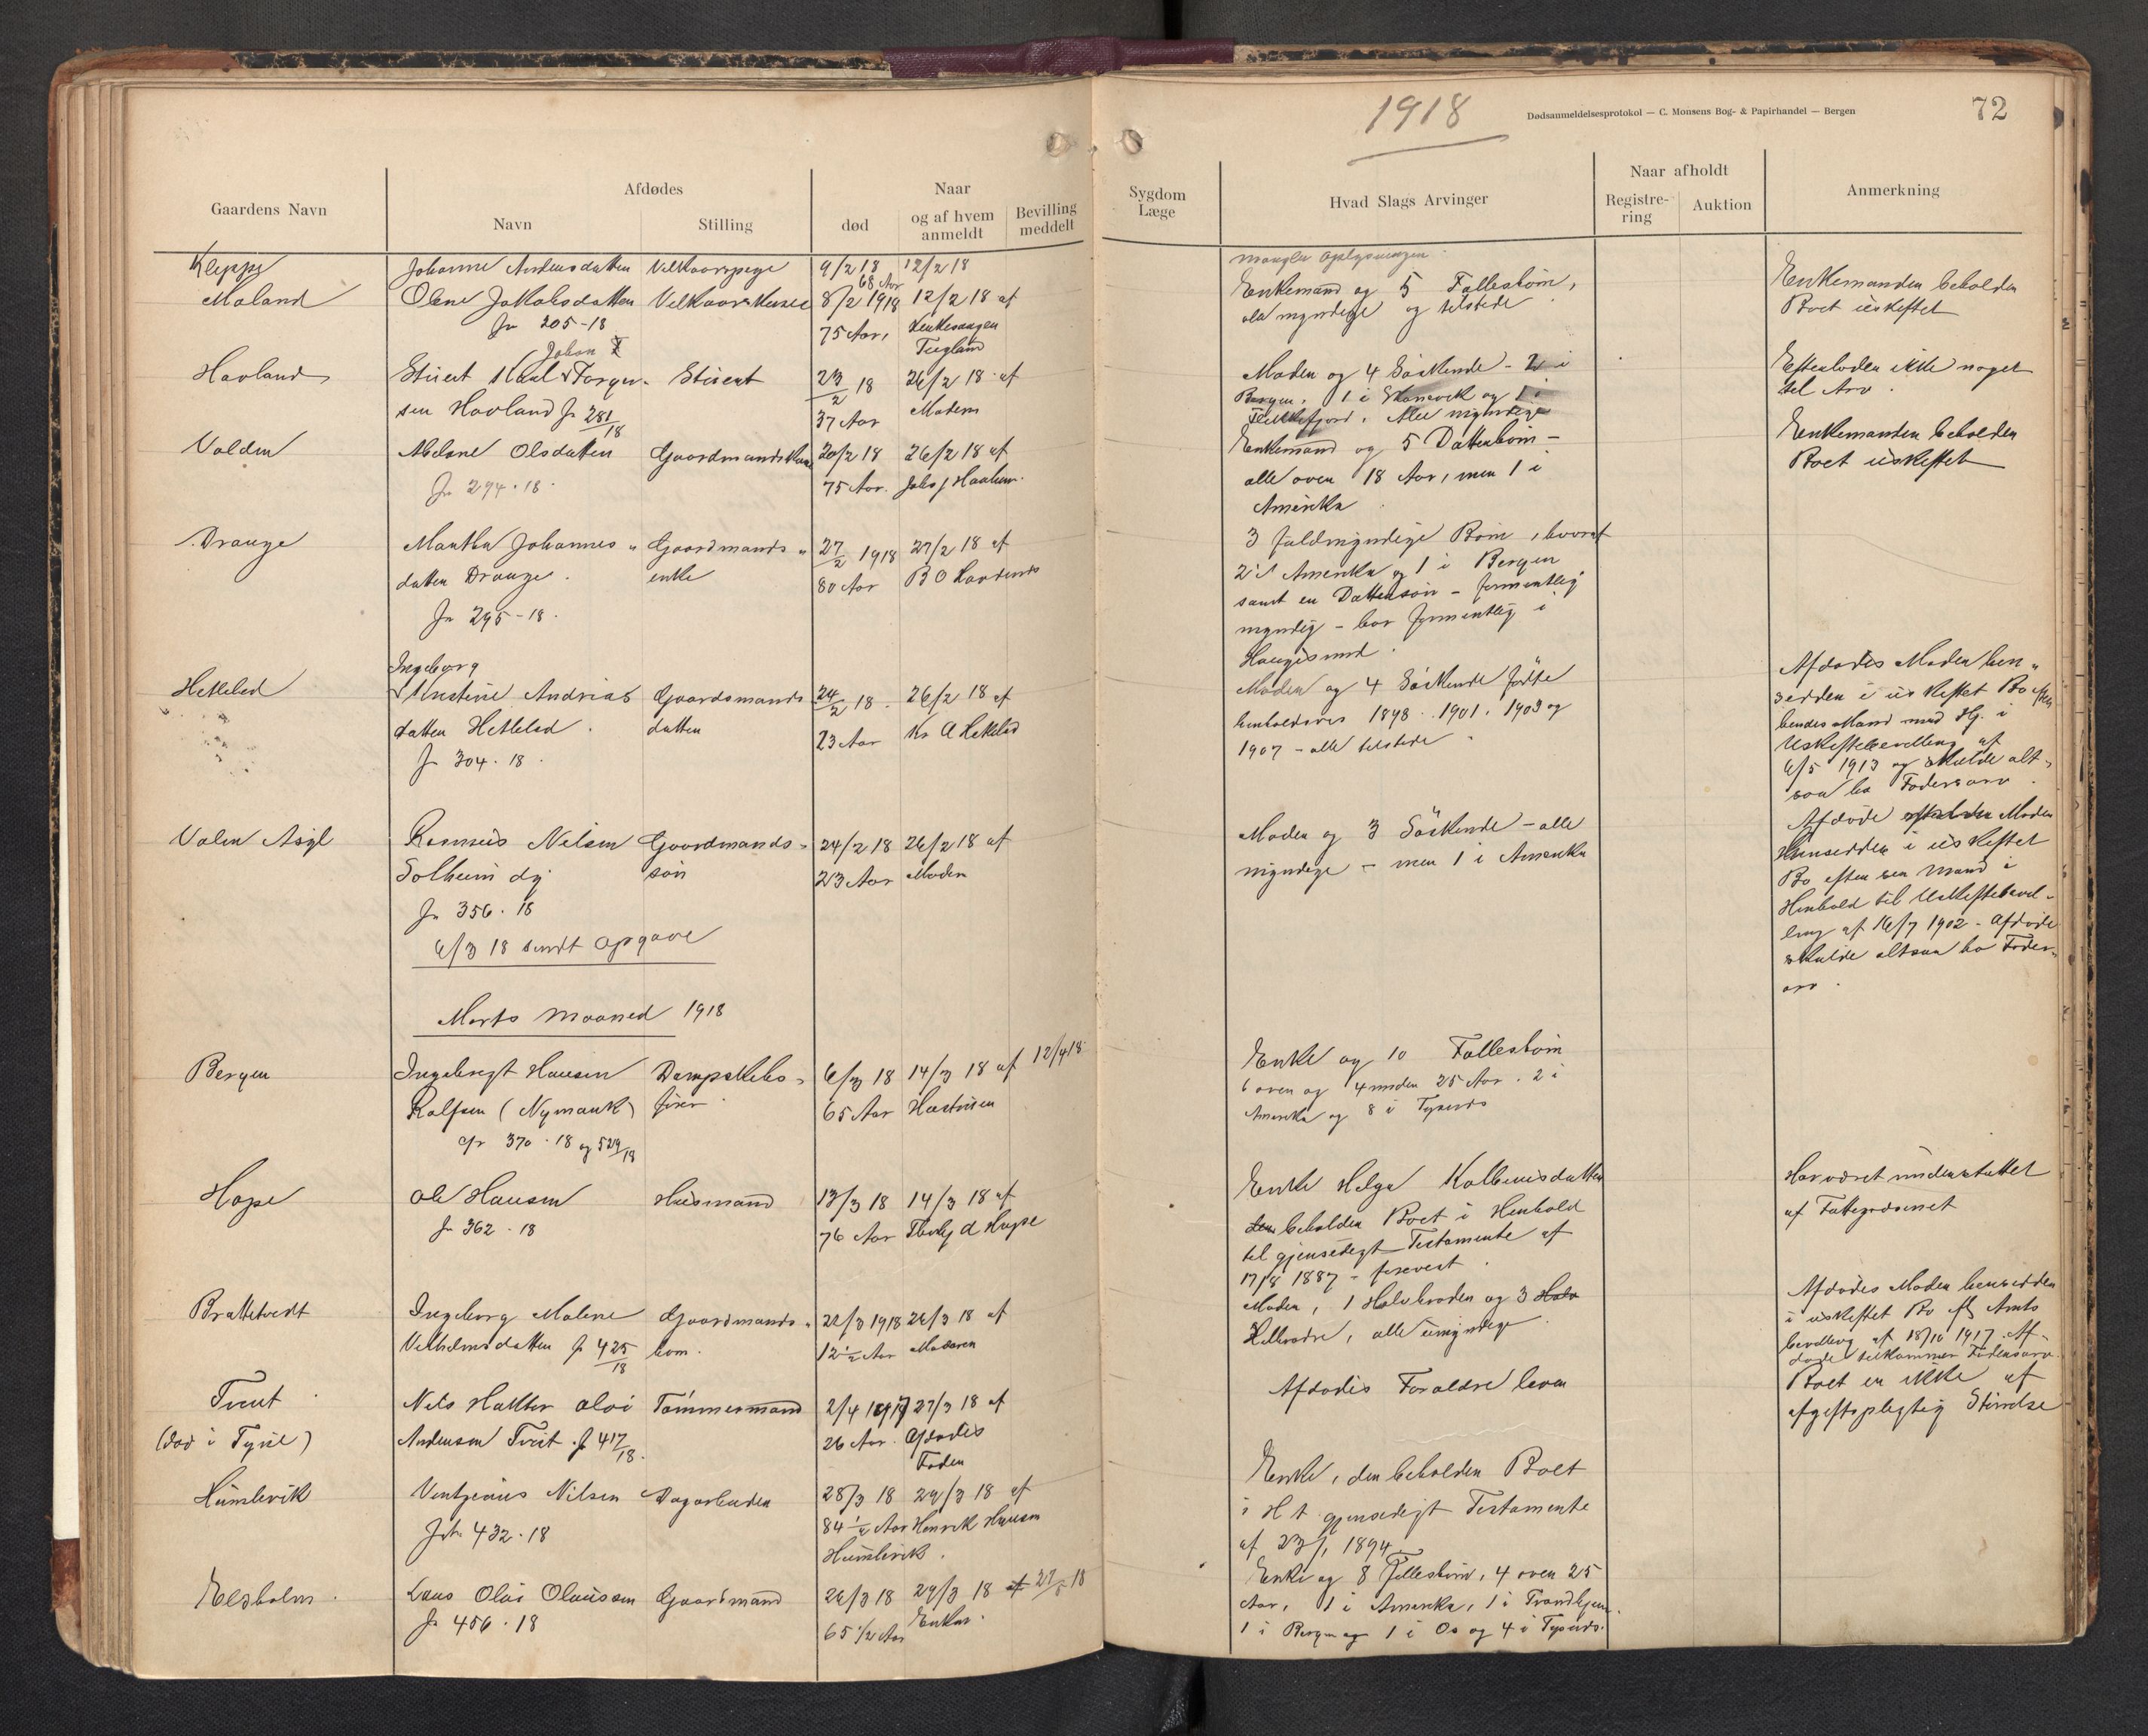 1918
Dødsanmeldelsesprotokol — C. Monsens Bog- & Papirhandel — Bergen
72
Gaardens Navn
Afdødes
Navn
Stilling
Naar
død
og af hvem anmeldt
Bevilling meddelt
Sygdom
Læge
Hvad Slags Arvinger
Naar afholdt
Registre-
ring
Auktion
Anmerkning
Kleppe Johanne Andersdatter Velkaarspige 9/2 18 12/2 18
68 Aar
mangler Oplysninger
Maland Olene Jakobsdatter 8/2 1918 12/2 18 af
Jr 205-18 75 Aar,
Enkemand og 5 Fællesbørn,
alle myndige og tilstede
Enkemanden beholder
Boet uskiftet
Johan
Havland Stuert Torger- Stuert 23/2 18 26/2 18 af
sen Havland Jr 281/18 37 Aar Moderen
Moder og 4 Søskende - 2 i
Bergen, 1 i og 1 i
Flekkefjord. Alle myndige
Efterlader ikke noget
til Arv.
Valden Abelone Olsdatter Gaardmandskone 20/2 18 26/2 18 af
Jr 294.18. 75 Aar.
Enkemand og 5 Døttrebørn -
alle over 18 Aar, men 1 i
Amerika
Enkemanden beholder
Boet uskiftet
Drange Martha Johannes- Gaardmands- 27/2 1918 27/2 18 af
datter Drange. enke 80 Aar B O
Jr 295-18.
3 fuldmyndige Børn, hvoraf
2 i Amerika og 1 i Bergen
samt en Dattersøn - formentlig
myndig - bor formentlig i
Haugesund.
Ingeborg
Hetleled Kristine Andreas Gaardsmands 24/2 18. 26/2 18 af
datter Hetleled. datter 23 Aar Kr A Hetleled
Jr 304.18.
Moder og 4 Søskende fødte
henholdsvis 1898. 1901. 1903 og
1907 - alle tilstede
Afdødes Moder hen-
sidder i uskiftet Bo efter
hendes Mand med Hj. i
Uskiftebevilling af
6/5 1913 og skulde alt-
saa ha Fadersarv.
Valen Rasmus Nilsen Gaardmands- 24/2 18 26/2 18 af
Solheim søn 23 Aar Moder
Jr 356.18
6/3 18 sendt Opgave
Moder og 3 Søskende - alle
myndige - men 1 i Amerika
Afdøde Moder
hensidder i uskiftet
Bo efter sin Mand i
Henhold til Uskiftebevil-
ling af 16/7 1902 - Afdøde
skulde altsaa ha Faders-
arv.
Marts Maaned 1918
Bergen Ingebrigt Hansen Dampskibs- 6/3 18 14/3 18 af 12/4 18
Rolfsen (Nymark) fører 65 Aar
Jr 370.18 og 529/18
Enke og 10 Fællesbørn
6 over og 4 under 25 Aar. 2 i
Amerika og 8 i Tysnes
Hope Ole Hansen Husmand 13/3 18 14/3 18 af
Jr 362.18 76 Aar
Enke Helga Kolbeinsdatter
der beholder Boet i Henhold
til gjensidigt Testamente af
17/8 1887 -
Har været understøttet
af Fattigvæsenet
Brattetvedt Ingeborg Malene Gaardmands- 22/3 1918 26/3 18 af
Vilhelmsdatter Jr 425/18 barn. 12 1/2 Aar Moderen
Moder, 1 Halvbroder og 3 Halv
Helbrødre, alle umyndige.
Afdødes Moder hensidder
i uskiftet Bo Amts
bevilling af 18/10 1917. Af-
døde tilkommer Fadersarv.
Tveit Nils Olai Tømmermand 2/4 1917 27/3 18 af
(død i Tyne) Andersen Tveit. Jr 417/18. 26 Aar. Afdødes
Fader
Afdødes Forældre lever
Boet er ikke af
afgiftspligtig Størrelse
Humlevik Ventzeius Nilsen Dagarbeider 28/3 18 29/3 18 af
Jr 432.18 84 1/2 Aar Henrik Hansen
Humlevik.
Enke, der beholder Boet
i H t gjensidigt Testamente
af 23/1 1894.
Elsholm. Lars Olai Olaussen Gaardmand 26/3 18 29/3 18 af 27/5 18
Jr 456.18 65 1/2 Aar Enken.
Enke og 8 Fællesbørn, 4 over 25
Aar, 1 i Amerika, 1 i Trondhjem
1 i Bergen og 1 i Os og 4 i Tysnes.